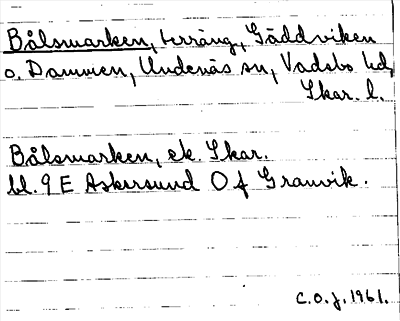 Bålsmarken, terräng, Gäddviken
o. Dammen, Undenäs sn, Vadsbo hd,
Skar. l.
Bålsmarken, ek. Skar.
bl. 9 E Askersund O f Granvik.
C.O.J. 1961.